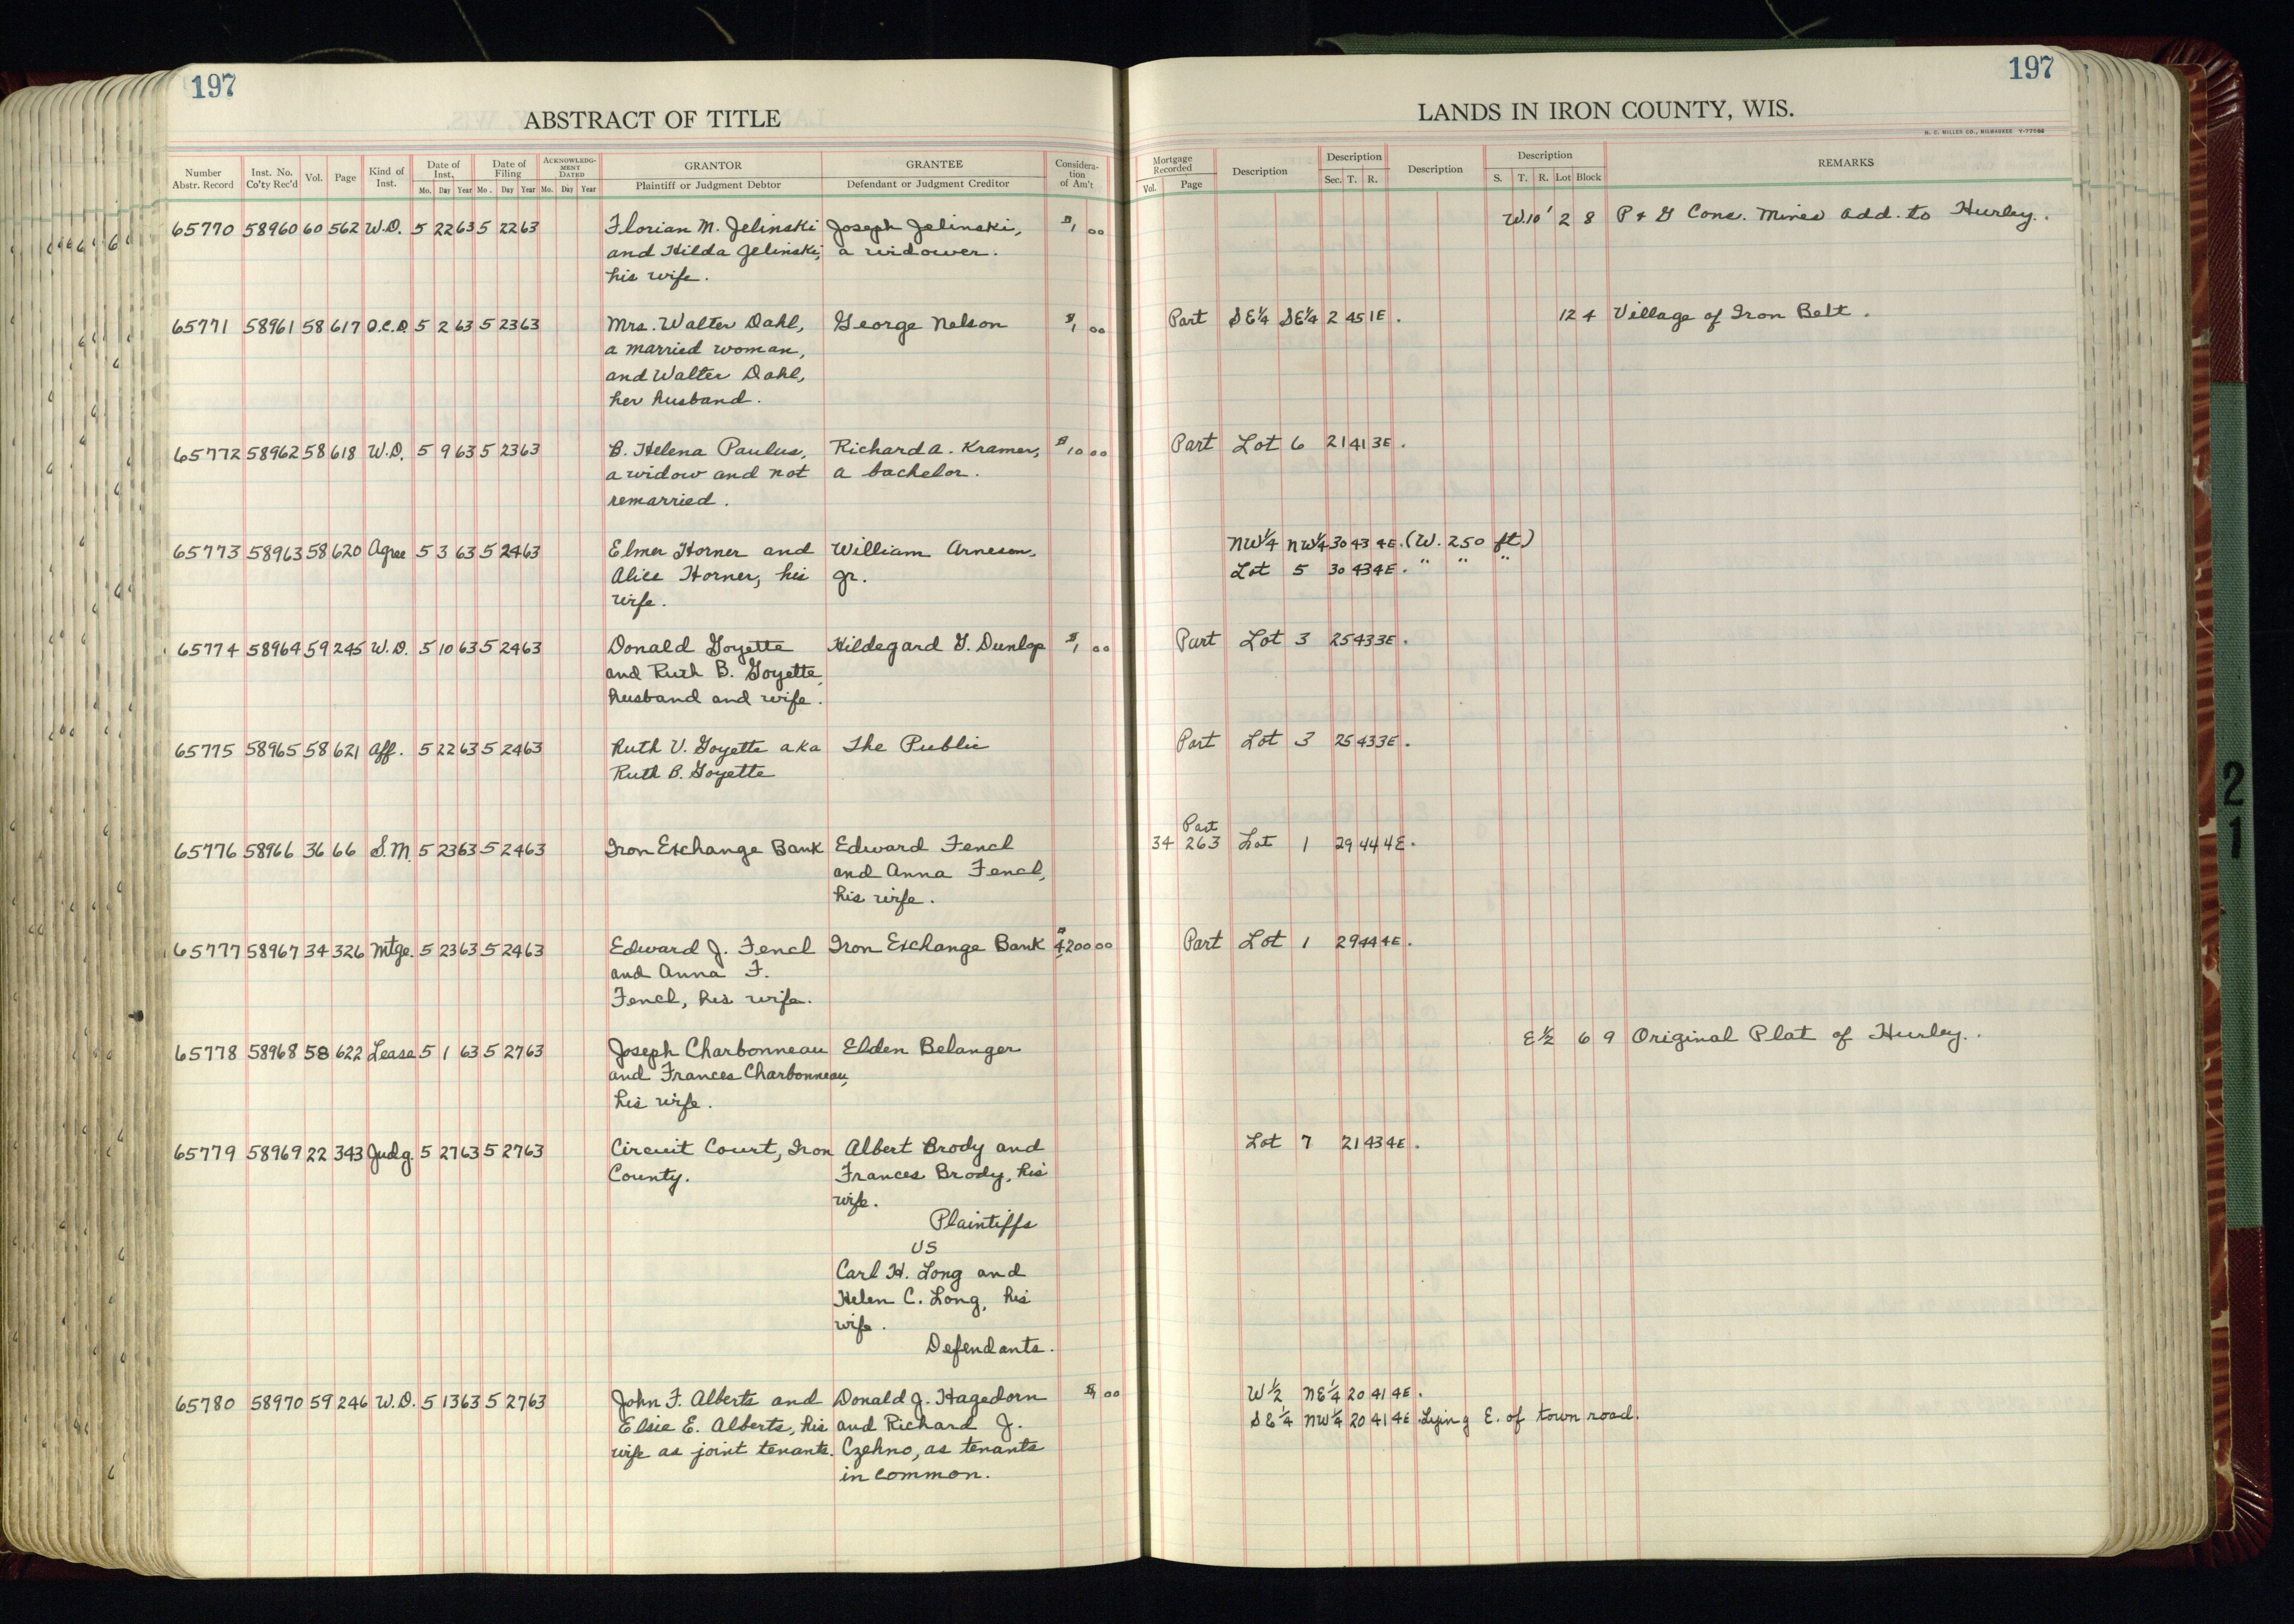 197
197
ABSTRACT OF TITLE
LANDS IN IRON COUNTY, WIS.
H. C. MILLER CO., MILWAUKEE
Number Abstr. Record Inst. No. Co'ty Rec'd Vol. Page Kind of Inst. Date of Inst. Mo. Day Year Date of Filing Mo. Day Year ACKNOWLEDGMENT DATED Mo. Day Year GRANTOR Plaintiff or Judgment Debtor GRANTEE Defendant or Judgment Creditor Consideration of Am't
Mortgage Recorded Vol. Page Description Description Sec. T. R. Description Description S. T. R. Lot Block REMARKS
65770 58960 60 562 W.D. 5 22 63 5 22 63 Florian M. Jelinski Joseph Jelinski, $1 00 W.10' 2 8 P & G Cons. Mines Add. to Hurley.
and Hilda Jelinski, a widower.
his wife.
65771 58961 58 617 Q.C.D. 5 2 63 5 23 63 Mrs. Walter Dahl, George Nelson $1 00 Part SE¼ SE¼ 2 45 1E. 12 4 Village of Iron Belt.
a married woman,
and Walter Dahl,
her husband.
65772 58962 58 618 W.D. 5 9 63 5 23 63 B. Helena Paulus, Richard A. Kramer, $10 00 Part Lot 6 21 41 3E.
a widow and not a bachelor.
remarried.
65773 58963 58 620 Agree 5 3 63 5 24 63 Elmer Horner and William Arneson, NW¼ NW¼ 30 43 4E. (W. 250 ft)
Alice Horner, his Jr. Lot 5 30 43 4E. " " "
wife.
65774 58964 59 245 W.D. 5 10 63 5 24 63 Donald Goyette Hildegard G. Dunlop $1 00 Part Lot 3 25 43 3E.
and Ruth B. Goyette,
husband and wife.
65775 58965 58 621 Aff. 5 22 63 5 24 63 Ruth V. Goyette aka The Public Part Lot 3 25 43 3E.
Ruth B. Goyette
Part
65776 58966 36 66 S.M. 5 23 63 5 24 63 Iron Exchange Bank Edward Fencl 34 263 Lot 1 29 44 4E.
and Anna Fencl,
his wife.
65777 58967 34 326 Mtge. 5 23 63 5 24 63 Edward J. Fencl Iron Exchange Bank $4200 00 Part Lot 1 29 44 4E.
and Anna F.
Fencl, his wife.
65778 58968 58 622 Lease 5 1 63 5 27 63 Joseph Charbonneau Elden Belanger E½ 6 9 Original Plat of Hurley.
and Frances Charbonneau,
his wife.
65779 58969 22 343 Judg. 5 27 63 5 27 63 Circuit Court, Iron Albert Brody and Lot 7 21 43 4E.
County. Frances Brody, his
wife.
Plaintiffs
VS
Carl H. Long and
Helen C. Long, his
wife.
Defendants.
65780 58970 59 246 W.D. 5 13 63 5 27 63 John F. Alberts and Donald J. Hagedorn $1 00 W½ NE¼ 20 41 4E.
Elsie E. Alberts, his and Richard J. SE¼ NW¼ 20 41 4E. Lying E. of town road.
wife as joint tenants. Czehno, as tenants
in common.
21